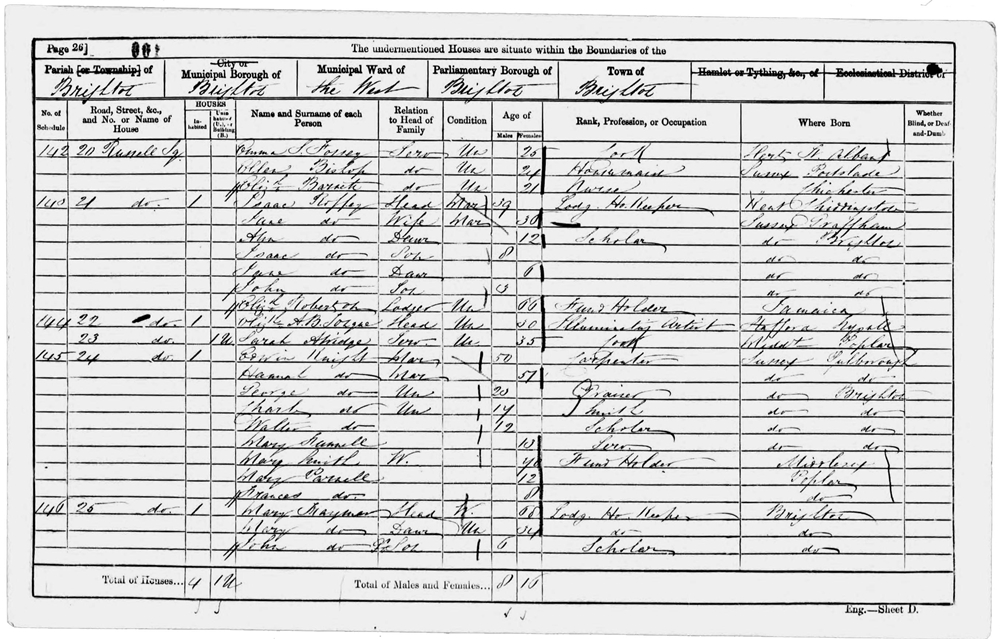 Page 26]
The undermentioned Houses are situate within the Boundaries of the
Parish [or Township] of
City or Municipal Borough of
Municipal Ward of
Parliamentary Borough of
Town of
Hamlet or Tything, &c., of
Ecclesiastical District of
Brighton Brighton the West Brighton Brighton
No. of Schedule
Road, Street, &c., and No. or Name of House
HOUSES
Inhabited
Uninhabited (U.), or Building (B.)
Name and Surname of each Person
Relation to Head of Family
Condition
Age of
Males Females
Rank, Profession, or Occupation
Where Born
Whether Blind, or Deaf-and-Dumb
142 20 Russell Sq. Emma S. Serv Un 25 Cook Herts St Albans
Ellen Bishop do Un 24 Housemaid Sussex Portslade
Elizth Barnett do Un 21 Nurse Chichester
143 21 do 1 Isaac Roffey Head Mar 39 Lodg. Ho. Keeper Kent Chiddingstone
Jane do Wife Mar 38 Sussex Graffham
do Daur 12 Scholar do Brighton
Isaac do Son 8 do do
Jane do Daur 6 do do
John do Son 3 do do
Elizth Robertson Lodger Un 66 Fund Holder Jamaica
144 22 do 1 A. B. Head Un 30 Illuminating Artist
23 do 1U Sarah Serv Un 35 Cook Middx Poplar
145 24 do 1 Edwin Knight Mar 50 Carpenter Sussex Pulborough
Hannah do Mar 51 do do
George do Un 20 do Brighton
Charls do Un 17 Smith do do
Walter do 12 Scholar do do
Mary 13 Serv do do
Mary Smith W. Fund Holder Middlesex
Mary 12 Poplar
Frances do 8 do
146 25 do 1 Mary Head W 68 Lodg. Ho Keeper Brighton
Mary do Daur Un 34 do do
John do Son 6 Scholar do
Total of Houses... 4 1U Total of Males and Females... 8 16
Eng.—Sheet D.